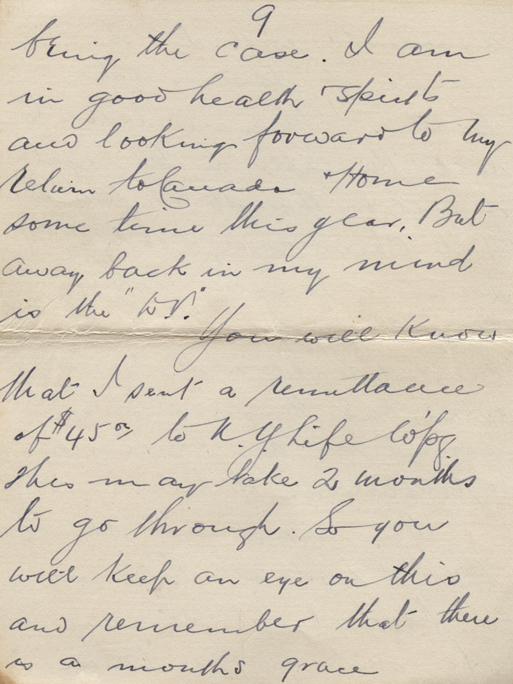 9
being the case. I am
in good health & spirits
and looking forward to my
return to Canada & Home
some time this year. But
away back in my mind
is the
You will Know
that I sent a remittance
of $45 to N.Y Life
this may take 2 months
to go through. So you
will keep an eye on this
and remember that there
is a months grace